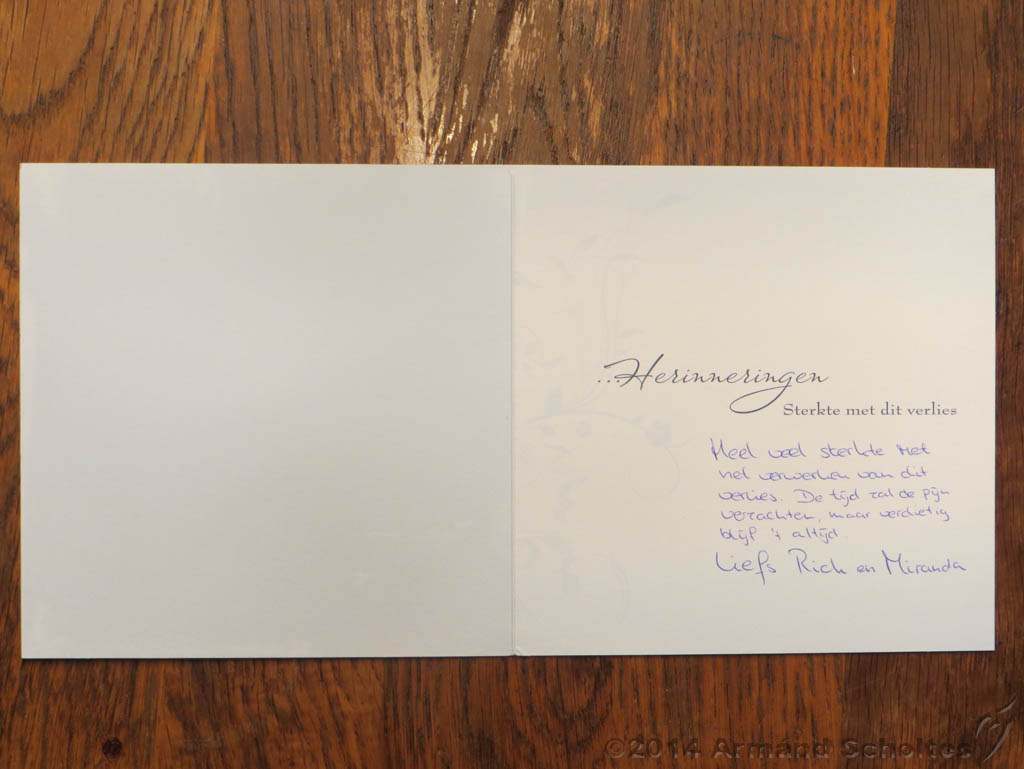 ...Herinneringen
Sterkte met dit verlies
Heel veel sterkte met
het verwerken van dit
verlies. De tijd zal de pijn
verzachten, maar verdrietig
blijf 't altijd.
Liefs Rich en Miranda
©2014 Armand Scholtes